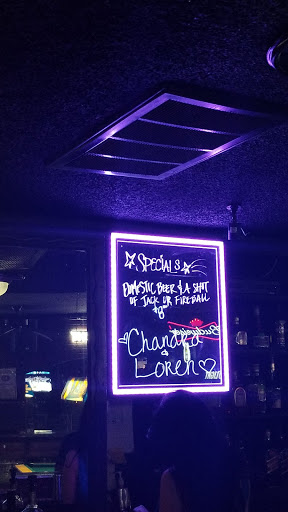 SPECIALS
DOMESTIC BEER & A SHOT
OF JACK OR FIREBALL
Chandra
&
Loren